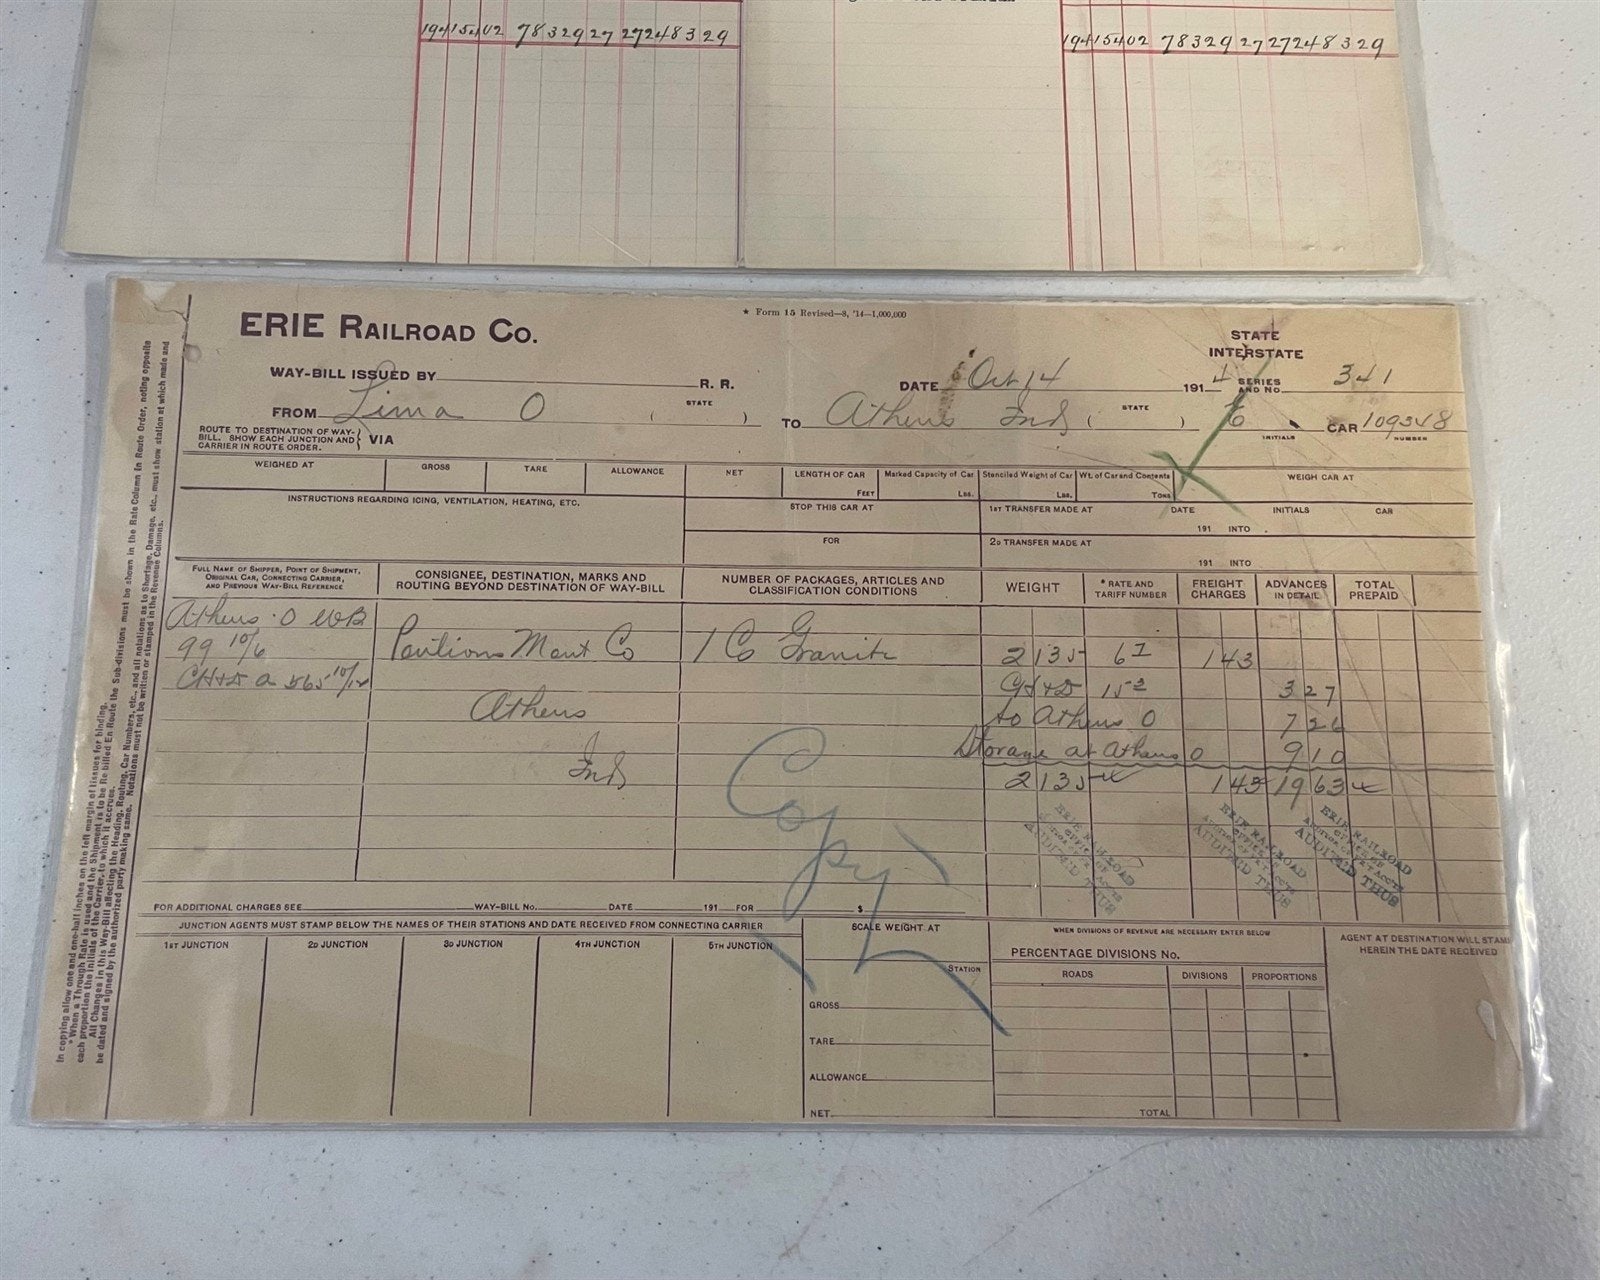 194 154 02 78329 27 27248329
194 154 02 78329 27 27248329
★ Form 15 Revised—8, '14—1,000,000
ERIE RAILROAD CO.
STATE
INTERSTATE
WAY-BILL ISSUED BY R. R.
DATE Oct 14 191 4 SERIES AND NO. 341
FROM Lima O ( STATE ) TO Athens Ind ( STATE ) INITIALS CAR 109348 NUMBER
ROUTE TO DESTINATION OF WAY-
BILL. SHOW EACH JUNCTION AND
CARRIER IN ROUTE ORDER.
VIA
WEIGHED AT GROSS TARE ALLOWANCE NET LENGTH OF CAR FEET Marked Capacity of Car LBS. Stenciled Weight of Car LBS. Wt. of Car and Contents TONS WEIGH CAR AT
INSTRUCTIONS REGARDING ICING, VENTILATION, HEATING, ETC. STOP THIS CAR AT 1ST TRANSFER MADE AT DATE INITIALS CAR
191 INTO
FOR 2D TRANSFER MADE AT
191 INTO
FULL NAME OF SHIPPER, POINT OF SHIPMENT,
ORIGINAL CAR, CONNECTING CARRIER,
AND PREVIOUS WAY-BILL REFERENCE
CONSIGNEE, DESTINATION, MARKS AND
ROUTING BEYOND DESTINATION OF WAY-BILL
NUMBER OF PACKAGES, ARTICLES AND
CLASSIFICATION CONDITIONS
WEIGHT
* RATE AND
TARIFF NUMBER
FREIGHT
CHARGES
ADVANCES
IN DETAIL
TOTAL
PREPAID
Athens O WB
99 10/6 Mont Co 1 Co Granite 2135 143
CH&D 565 CH&D 3 27
Athens to Athens O 7 26
Storage at Athens O 9 10
Ind 2135 143 1963
Copy
ERIE RAILROAD
OFFICE OF
AUDITOR OF FRT ACCTS
AUDITED THUS
ERIE RAILROAD
OFFICE OF
AUDITOR OF FRT ACCTS
AUDITED THUS
ERIE RAILROAD
OFFICE OF
AUDITOR OF FRT ACCTS
AUDITED THUS
FOR ADDITIONAL CHARGES SEE WAY-BILL NO. DATE 191 FOR $
JUNCTION AGENTS MUST STAMP BELOW THE NAMES OF THEIR STATIONS AND DATE RECEIVED FROM CONNECTING CARRIER
1ST JUNCTION 2D JUNCTION 3D JUNCTION 4TH JUNCTION 5TH JUNCTION
SCALE WEIGHT AT
STATION
GROSS
TARE
ALLOWANCE
NET
WHEN DIVISIONS OF REVENUE ARE NECESSARY ENTER BELOW
PERCENTAGE DIVISIONS NO.
ROADS DIVISIONS PROPORTIONS
TOTAL
AGENT AT DESTINATION WILL STAMP
HEREIN THE DATE RECEIVED
In copying allow one and one-half inches on the left margin of tissues for binding.
* When a Through Rate is used and the Shipment is to be Re-billed En Route the Sub-divisions must be shown in the Rate Column in Route Order, noting opposite
each proportion the initials of the Carrier, to which it accrues.
All Changes in this Way-Bill affecting the Heading, Routing, Car Numbers, etc., and all notations as to Shortage, Damage, etc., must show station at which made and
be dated and signed by the authorized party making same. Notations must not be written or stamped in the Revenue Columns.